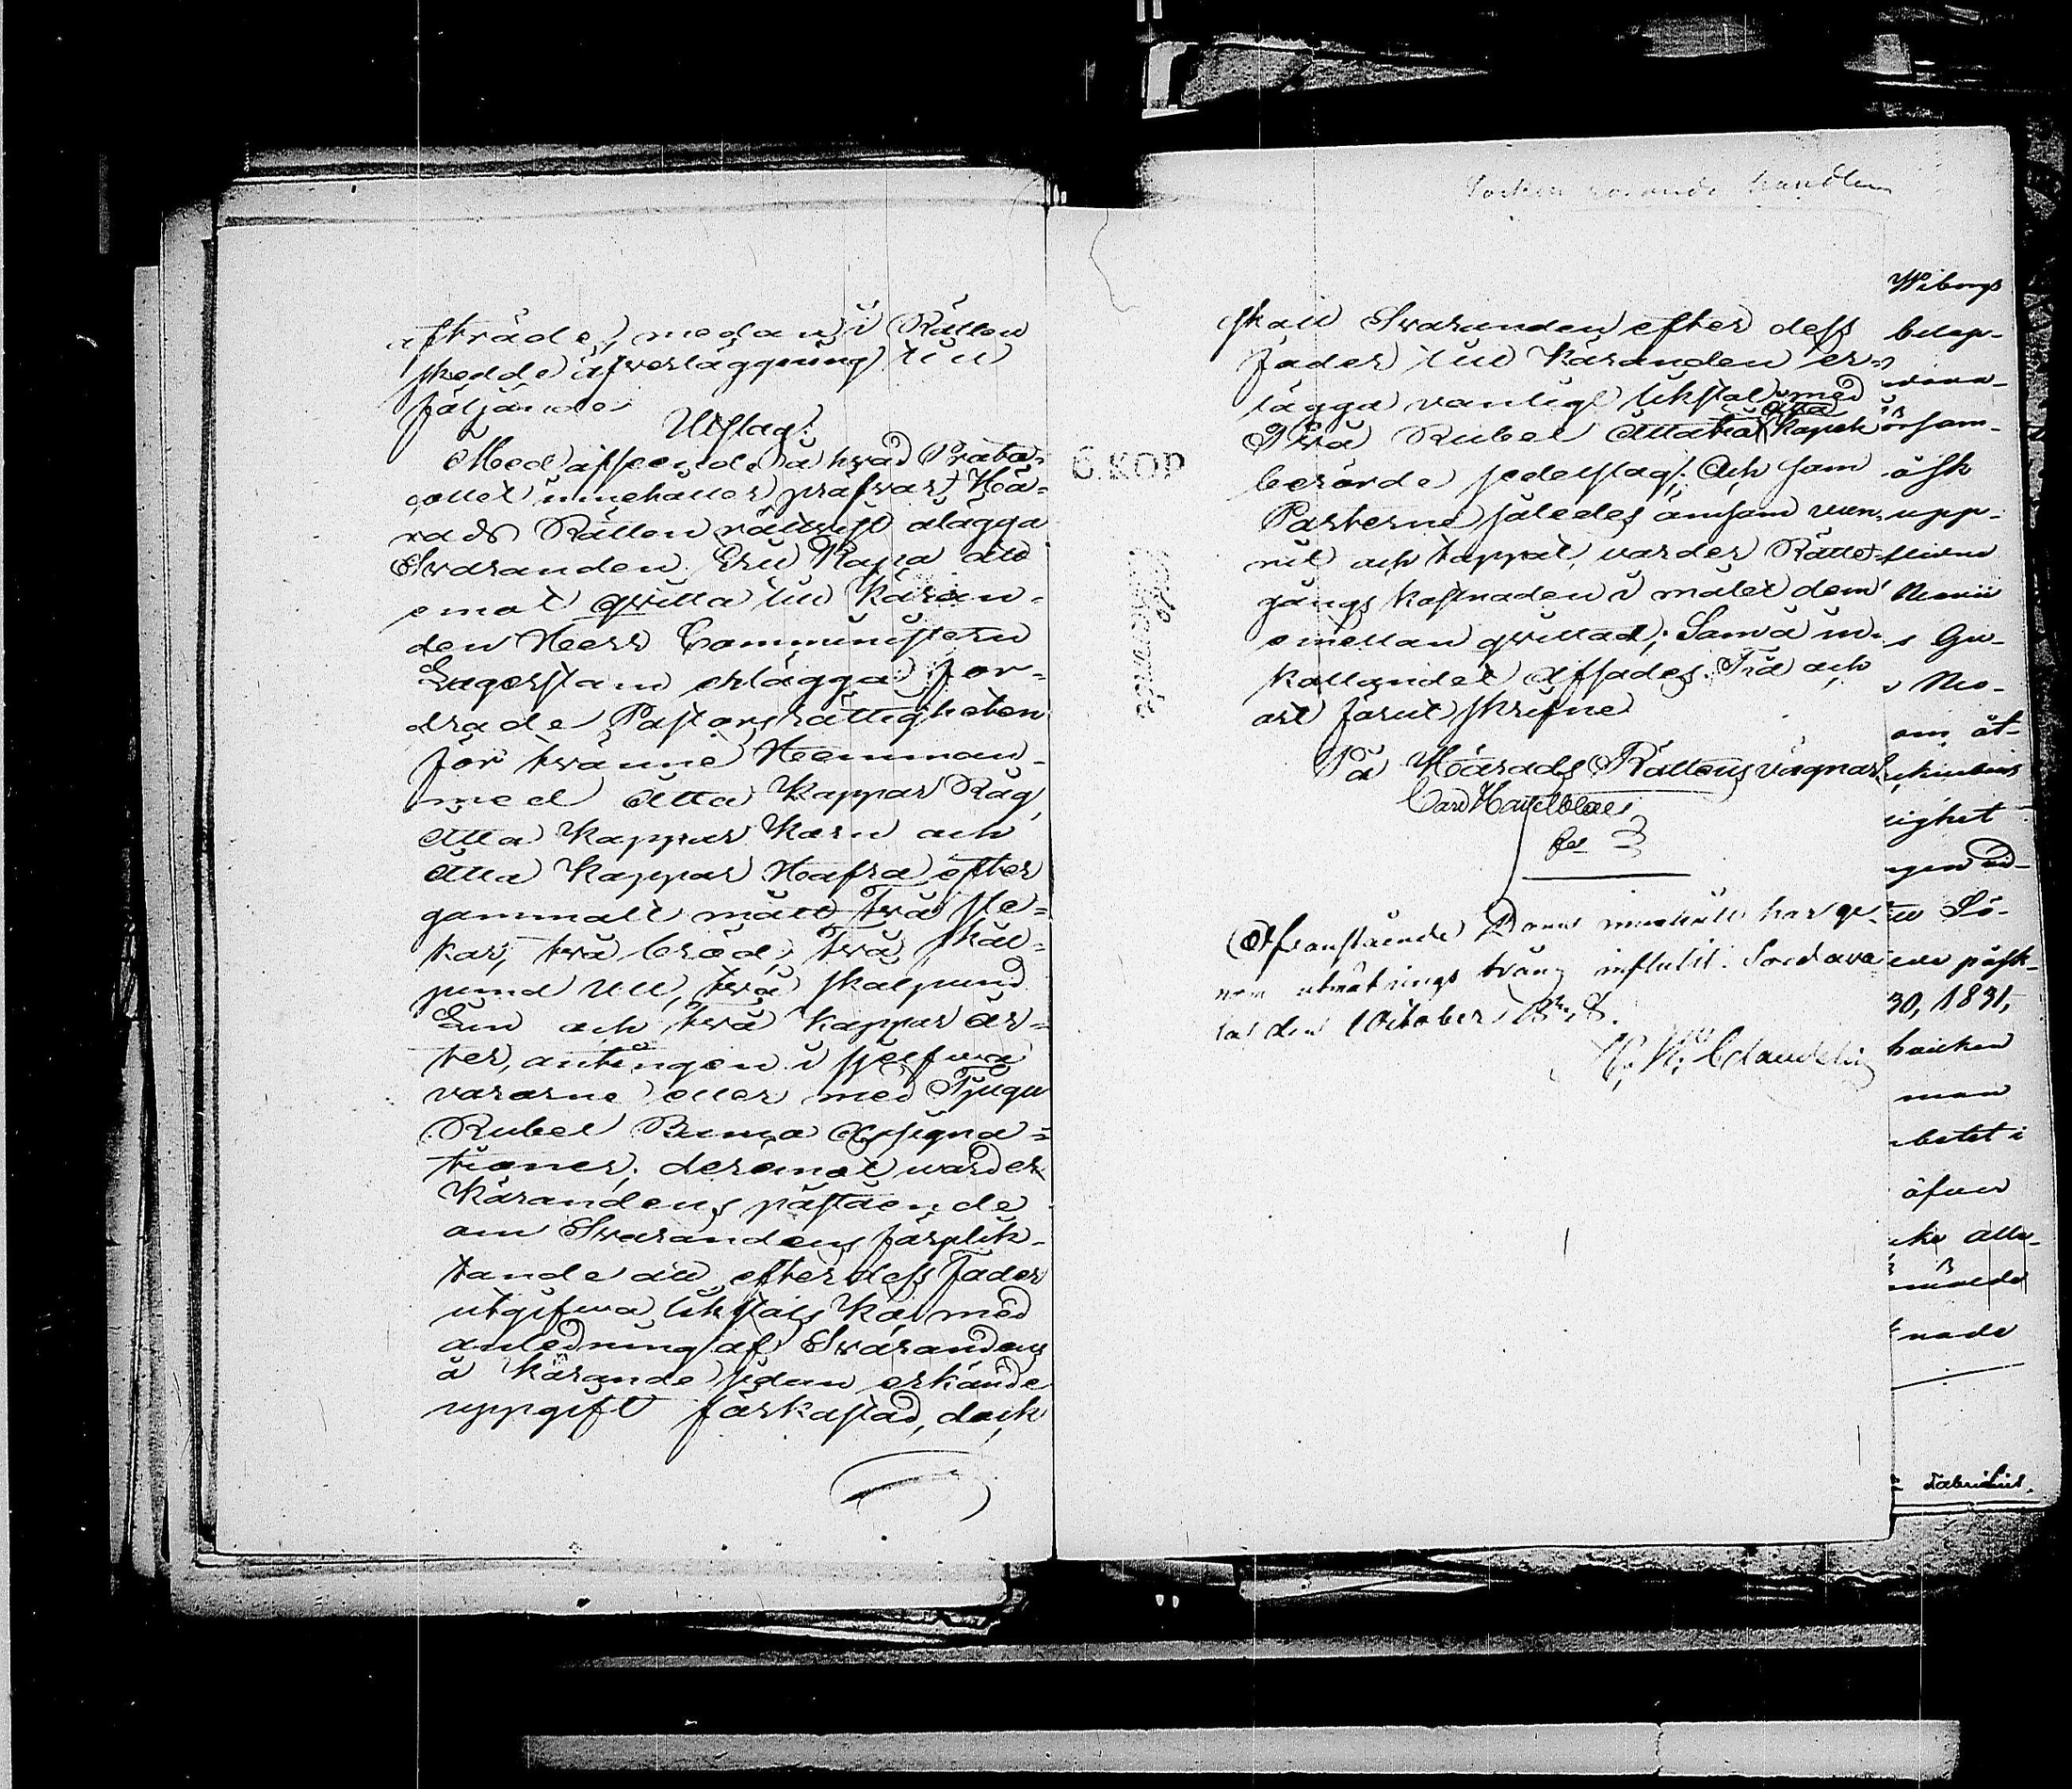 afträde, medan i Rätten
skedde öfverläggning till
följande
Utslag:
Med afseende å hvad Proto-
collet innehåller pröfvar Hä-
rads Rätten rättvist ålägga
Svaranden Eru Kopa att
emot qvitto till Käran-
den Herr Comministern
Lagerstam erlägga for-
drade Pastorsrättigheten
för tvänne Hemman
med Åtta Kappar Råg,
Åtta Kappar Korn och
Åtta Kappar Hafra efter
gammalt mått Två ste-
kar, två bröd, två skål-
pund Ull, två skålpund
Lin och två Kappar är-
ter, antingen i sjelfwa
varorne eller med Tjugu
Rubel Banco Assigna-
tioner; deremot varder
Kärandens påstående
om Svarandens förplik-
tande att efter dess Fader
utgifwa likstols Ko, med
anledning af Svarandens
å Kärande sidan erkände
uppgift förkastad, dock
Socken rörande handlin
skall Svaranden efter dess
Fader till Käranden er-
lägga vanligt likstol med
Två Rubel Åttatio åtta Kopek
berörde sedelslag; Och som
Parterne således ömsom vun-
nit och tappat, varder Rätte-
gångs kostnaden i målet dem
emellan qvittad; Som å in-
kallandet afsades. År och
ort förut skrifne
På Härads Rättens vägnar
Carl Haselblatt
6. KOP
Ofvanstående Doms innehåll har ge-
nom utmätnings tvång influtit. Sordava-
la den 1 October
Wiborgs
belop-
örsam-
åsk
upp-
s Gu-
Mo-
om åt-
ighet
påsk-
30, 1831,
man
betet i
äfven
cke alle-
nade